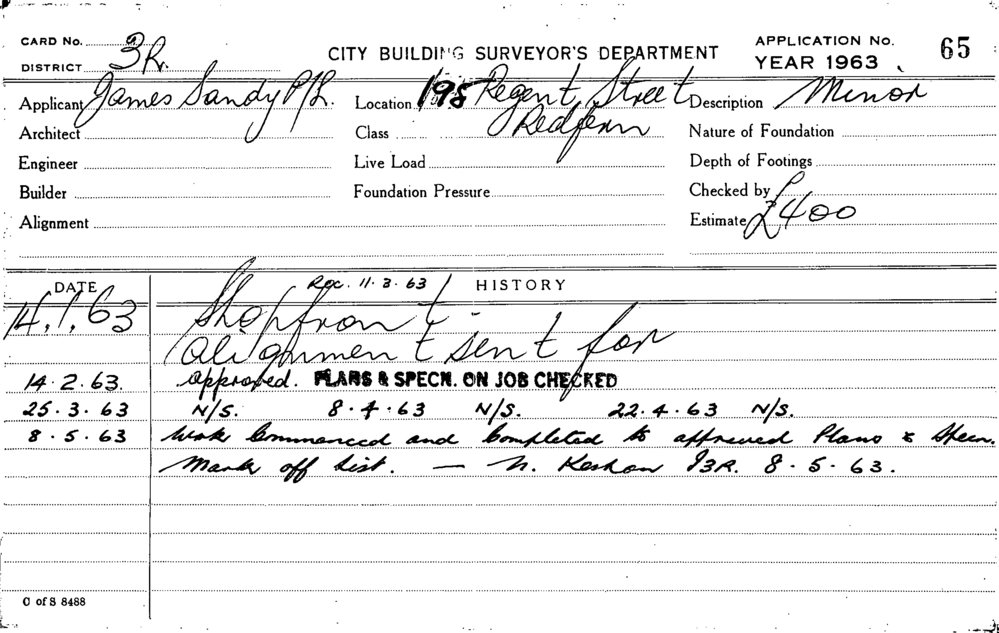 CARD No.
DISTRICT 3R.
CITY BUILDING SURVEYOR'S DEPARTMENT
APPLICATION No. 65
YEAR 1963
Applicant James Sandy P/L. Location 198 Regent Street Description Minor
Architect Class Redfern Nature of Foundation
Engineer Live Load Depth of Footings
Builder Foundation Pressure Checked by
Alignment Estimate £400
DATE Rec. 11.3.63 HISTORY
14.1.63 Shopfront -
(alignment sent for
14.2.63. approved. PLANS & SPECN. ON JOB CHECKED
25.3.63 N/S. 8.4.63 N/S. 22.4.63 N/S.
8.5.63 Work Commenced and Completed to approved Plans & Specn.
Mark off list. — N. 8.5.63.
C of S 8488